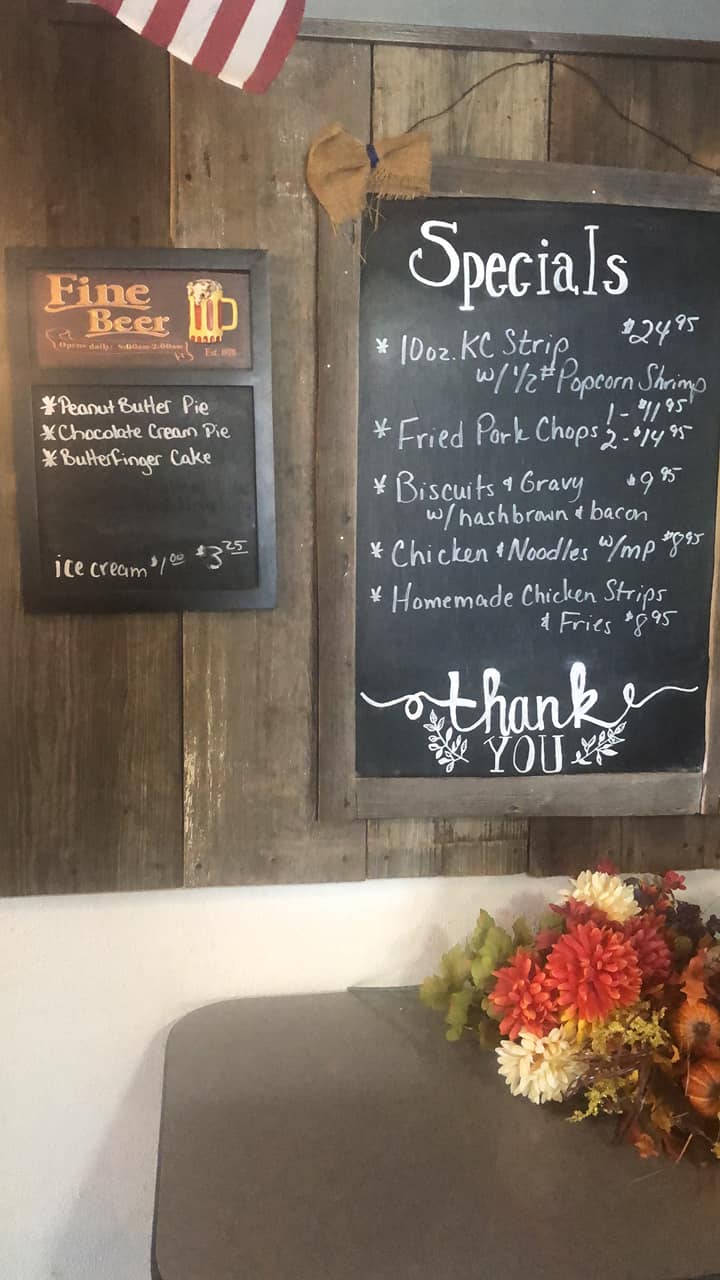 Fine
Beer
Opens daily: 8:00am-2:00am
Est. 1978
* Peanut Butter Pie
* Chocolate Cream Pie
* Butterfinger Cake
ice cream $1.00 $3.25
Specials
* 10oz. KC Strip $24.95
w/ 1/2# Popcorn Shrimp
1- $11.95
* Fried Pork Chops 2- $14.95
* Biscuits & Gravy $9.95
w/ hashbrown & bacon
* Chicken & Noodles w/mp $8.95
* Homemade Chicken Strips
& Fries $8.95
thank
YOU